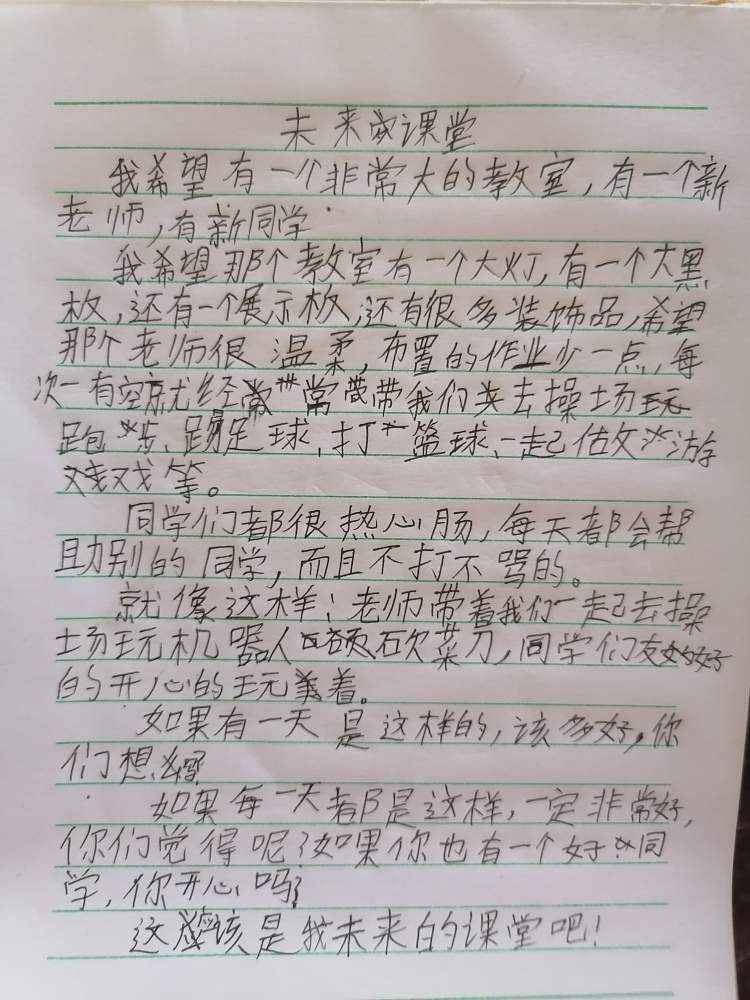 未来课堂
我希望有一个非常大的教室,有一个新
老师,有新同学.
我希望那个教室有一个大灯,有一个大黑
板,还有一个展示板,还有很多装饰品,希望
那个老师很温柔,布置的作业少一点,每
次一有空就经常带我们去操场玩
跑步、踢足球,打篮球、一起做游
戏等。
同学们都很热心肠,每天都会帮
助别的同学,而且不打不骂的。
就像这样:老师带着我们一起去操
场玩机器人砍菜刀,同学们友好
的开心的玩着。
如果有一天是这样的,该多好,你
们想
如果每一天都是这样,一定非常好,
你们觉得呢?如果你也有一个好同
学,你开心吗?
这应该是我未来的课堂吧!